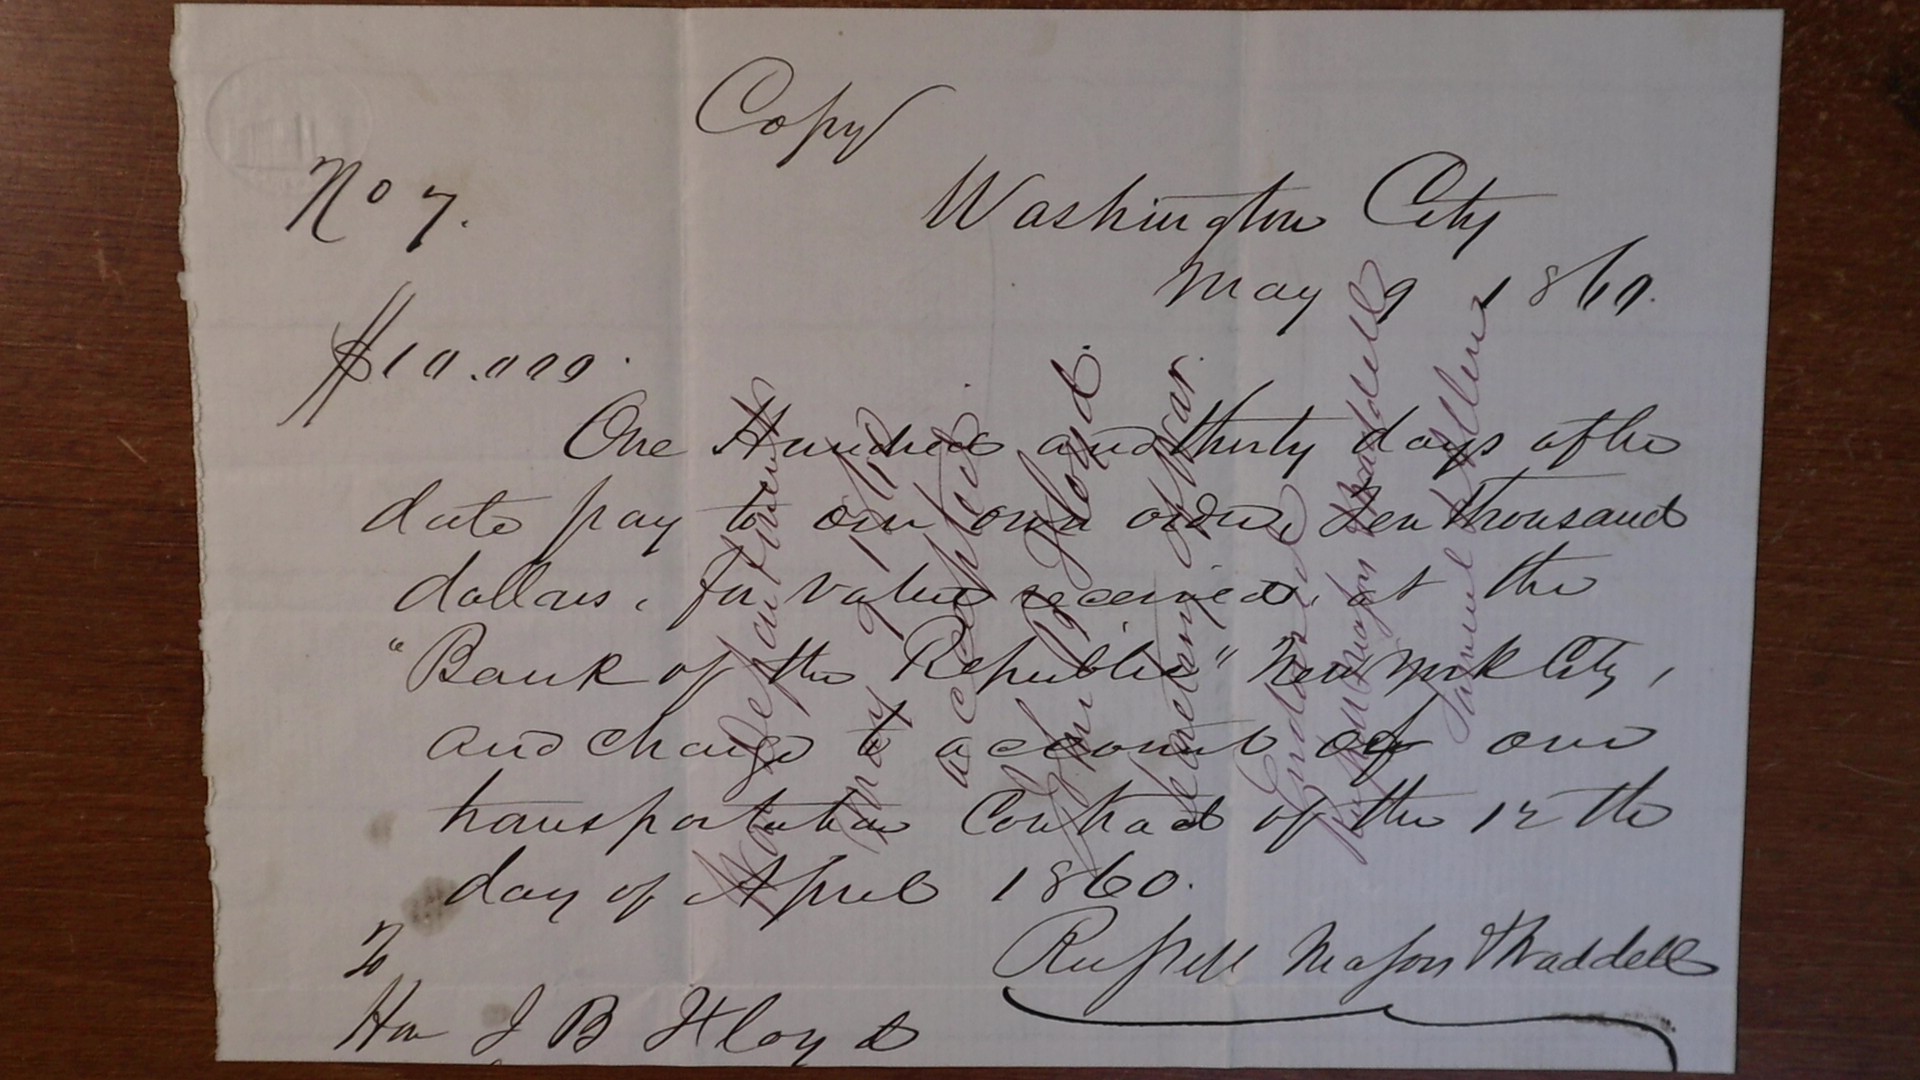 Copy
No 7.
Washington City
May 9 1860.
$10.000.
One Hundred and thirty days after
date pay to our own order, Ten thousand
dollars, for value received, at the
"Bank of the Republic" New York City,
and charge to account of our
transportation Contract of the 12th
day of April 1860.
Russell Majors & Waddell
To
Hon J B Floyd
War Department
May 9 1860
accepted.
John B Floyd.
Secretary of War.
Endorsed
Russell Majors & Waddell
Samuel & Allen